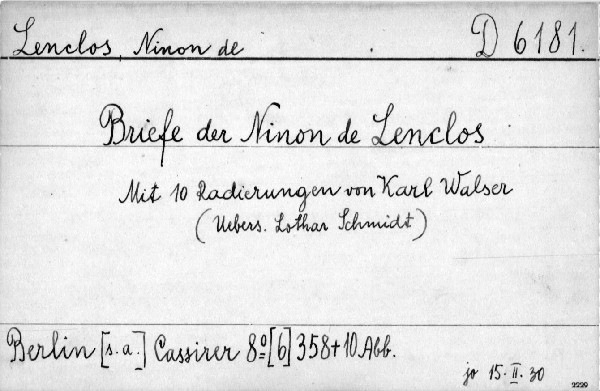 Lenclos, Ninon de D 6181.
Briefe der Ninon de Lenclos
Mit 10 Radierungen von Karl Walser
(Uebers. Lothar Schmidt)
Berlin [s.a.] Cassirer 8º [6] 358+10 Abb.
jo 15. II. 30
2229